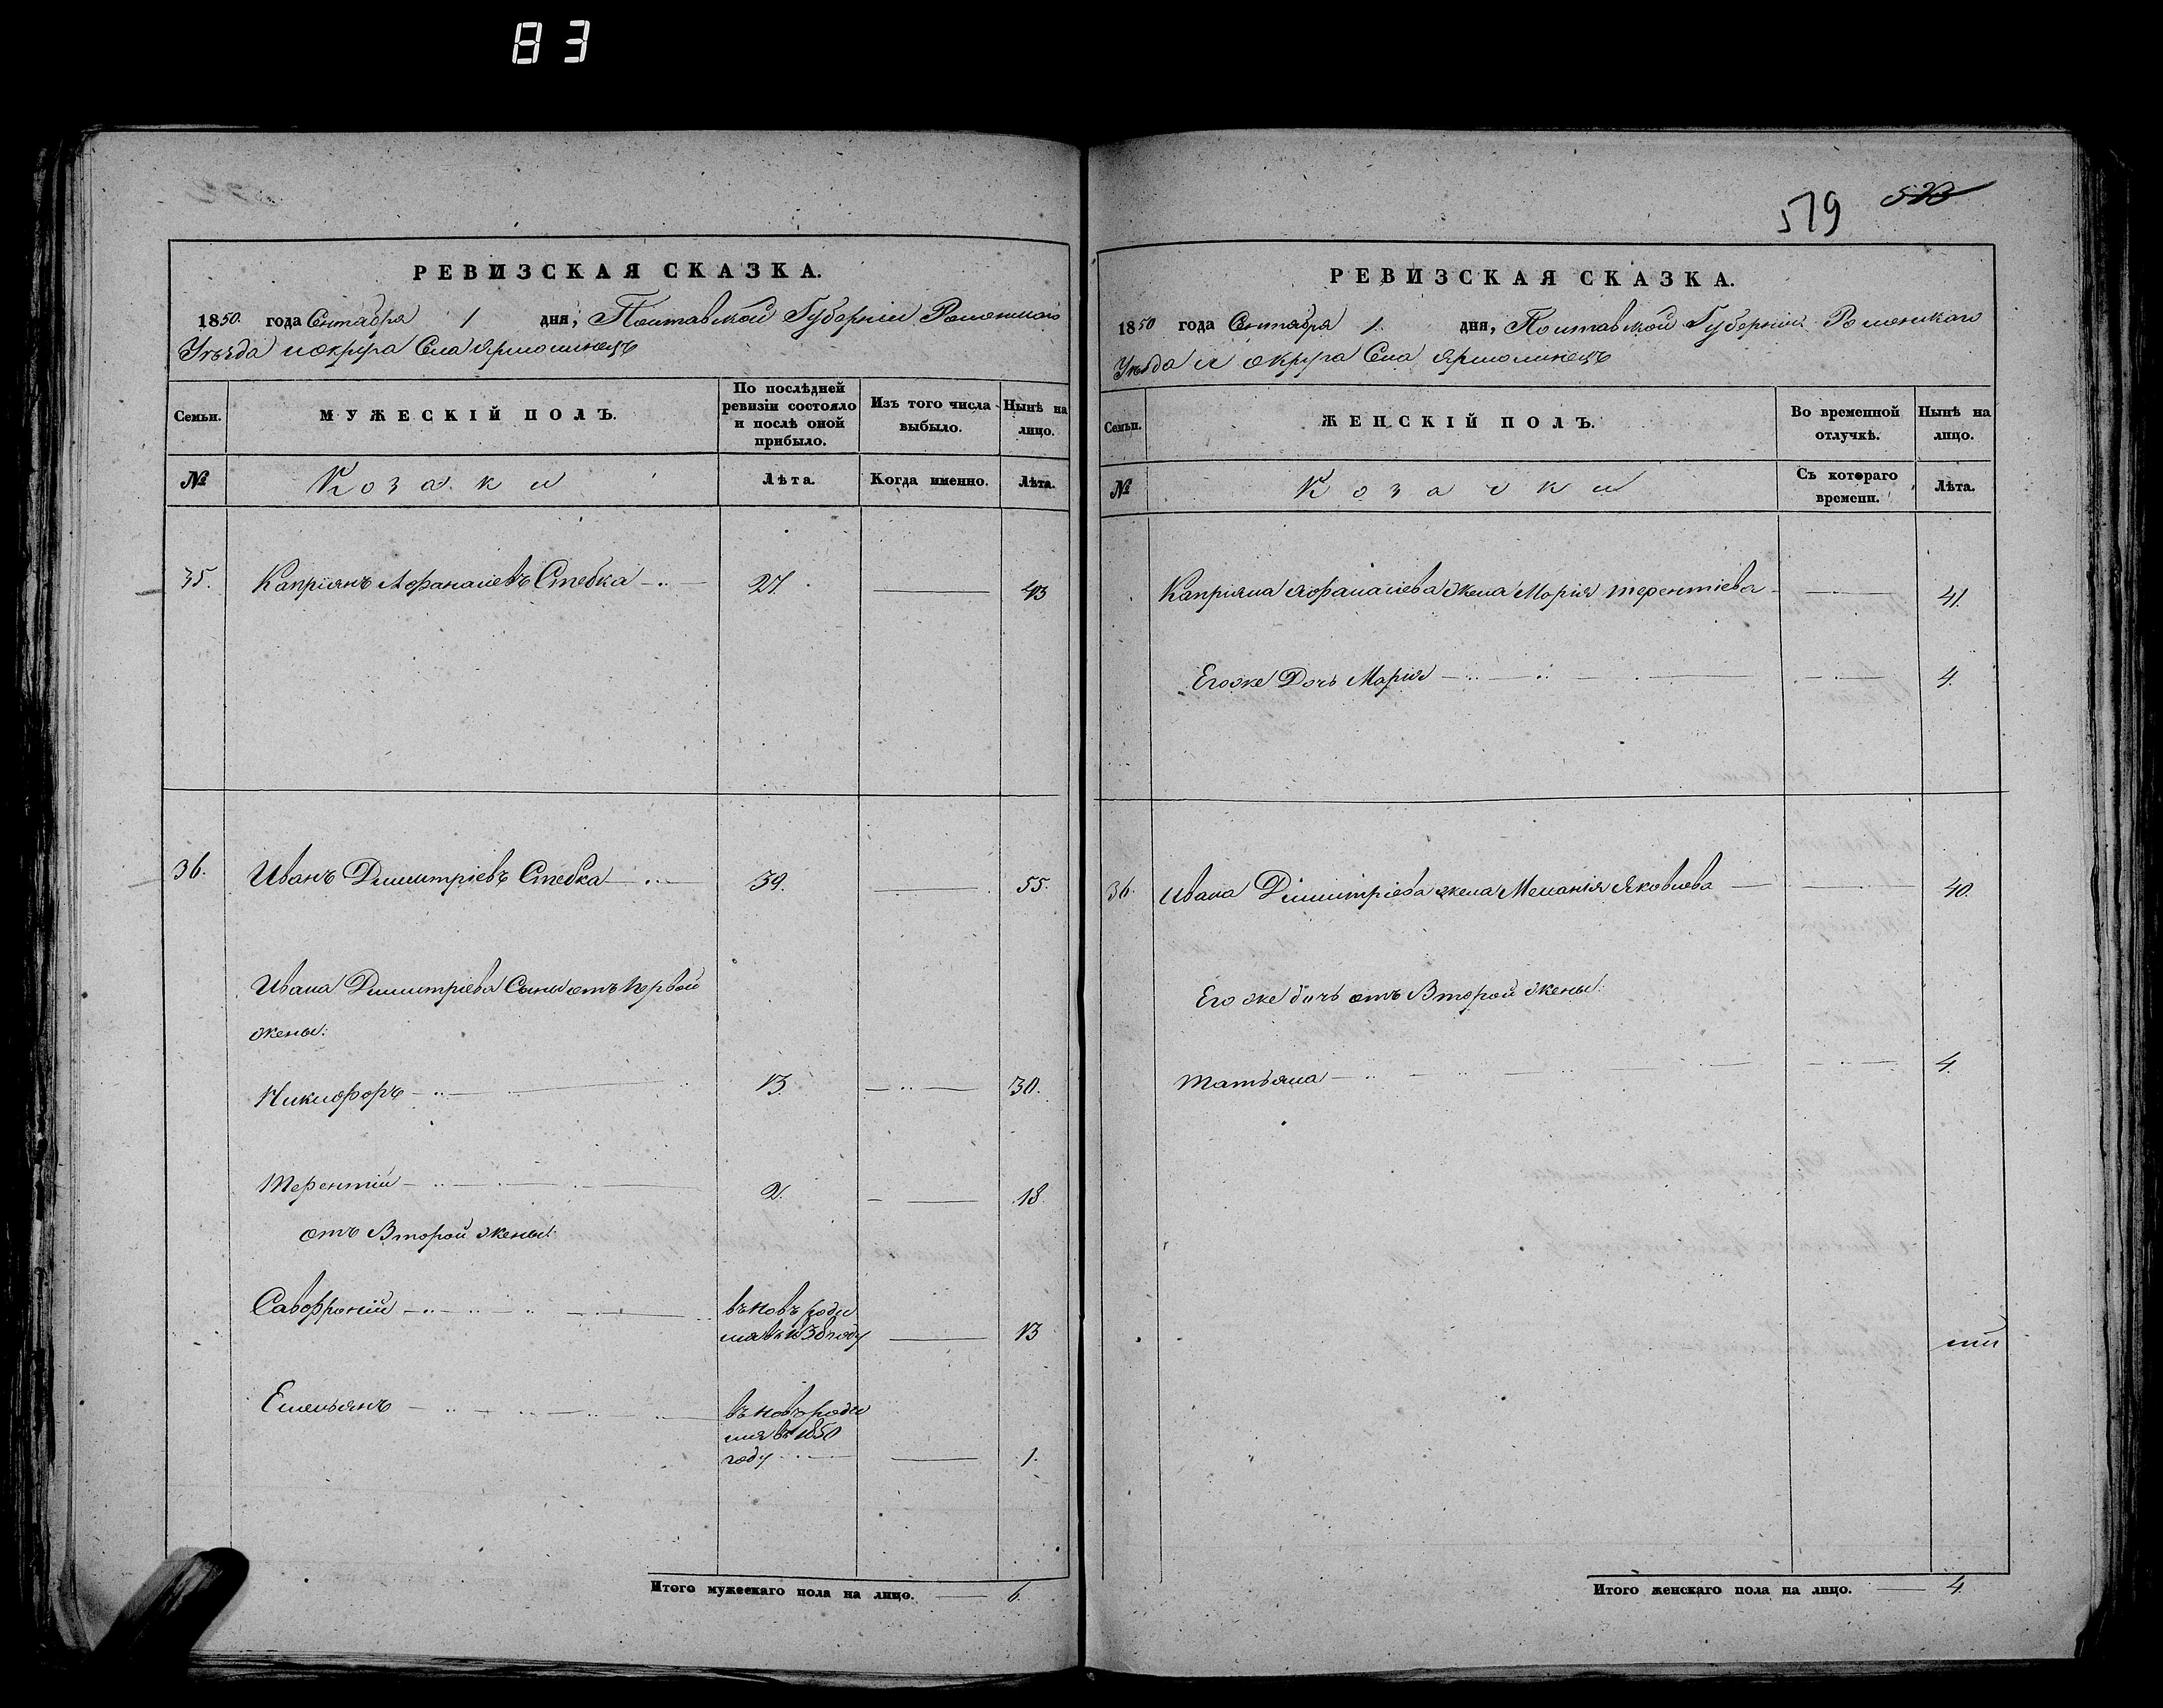 83
РЕВИЗСКАЯ СКАЗКА.
1850. года Сентября 1 дня, Полтавской Губерніи Роменскаго
Уѣзда и округа Села Ярмолинецъ
Семьи.
МУЖЕСКІЙ ПОЛЪ.
По послѣдней
ревизіи состояло
и послѣ оной
прибыло.
Изъ того числа
выбыло.
Нынѣ на
лицо.
№
Козаки
Лѣта.
Когда именно.
Лѣта.
35. Капріянъ Афанасіевъ Стебка 27. 43
36. Иванъ Димитріевъ Стебка 39. 55.
Ивана Димитріева Сыны отъ первой
жены:
Никифоръ 13. 30.
Терентій 2. 18.
отъ Второй жены:
Савфроній вновъ роди
лся въ 1836 году 13
Емельянъ вновъ роди
лся въ 1850
году 1.
Итого мужескаго пола на лицо. 6.
579 523
РЕВИЗСКАЯ СКАЗКА.
1850 года Сентября 1. дня, Полтавской Губерніи Роменскаго
Уѣзда и округа Села Ярмолинецъ
Семьи.
ЖЕНСКІЙ ПОЛЪ.
Во временной
отлучкѣ.
Нынѣ на
лицо.
№
Козачки
Съ котораго
времени.
Лѣта.
Капріяна Афанасіева жена Марія Терентіева 41.
Егоже Дочь Марія 4.
36. Ивана Димитріева жена Меланія Яковлева 40.
Его же дочь отъ Второй жены:
Татьяна 4.
Итого женскаго пола на лицо. 4.